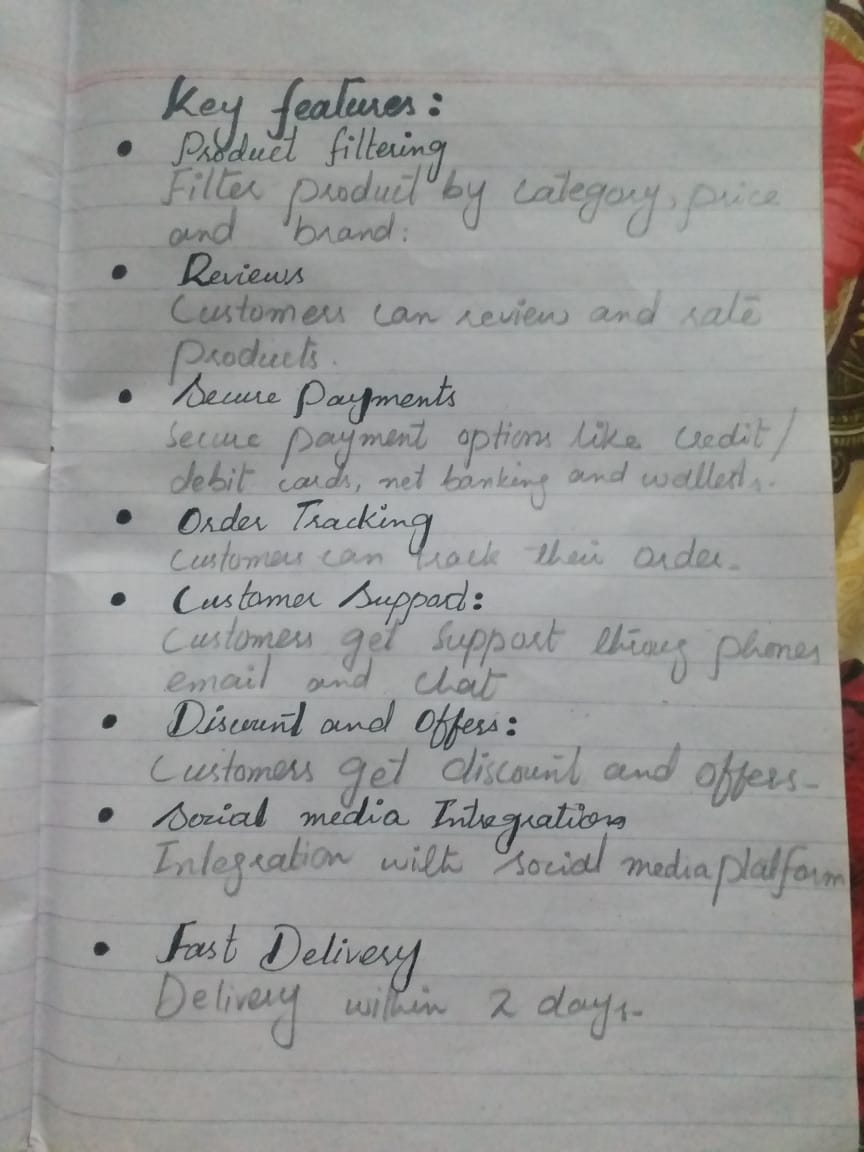 Key features:
• Product filtering
Filter product by category, price
and brand.
• Reviews
Customers can review and rate
products.
• Secure Payments
Secure payment options like credit/
debit cards, net banking and wallets.
• Order Tracking
Customers can track their order.
• Customer Support:
Customers get support throug phones
email and chat
• Discount and Offers:
Customers get discount and offers.
• Social media Integration
Integration with social media platform
• Fast Delivery
Delivery within 2 days.